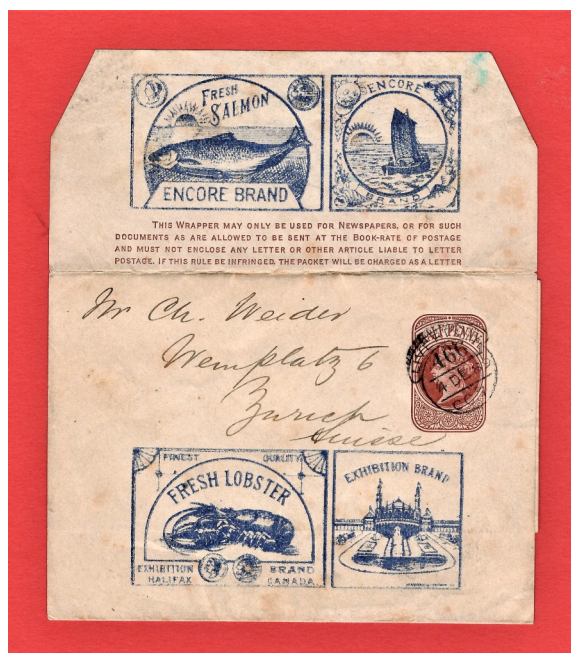 FRESH
SALMON
ENCORE BRAND
ENCORE
BRAND
THIS WRAPPER MAY ONLY BE USED FOR NEWSPAPERS, OR FOR SUCH
DOCUMENTS AS ARE ALLOWED TO BE SENT AT THE BOOK-RATE OF POSTAGE
AND MUST NOT ENCLOSE ANY LETTER OR OTHER ARTICLE LIABLE TO LETTER
POSTAGE. IF THIS RULE BE INFRINGED, THE PACKET WILL BE CHARGED AS A LETTER
Mr Ch. Weider
Zurich
Suisse
HALFPENNY
466
DE
FINEST QUALITY
FRESH LOBSTER
EXHIBITION BRAND
HALIFAX CANADA
EXHIBITION BRAND